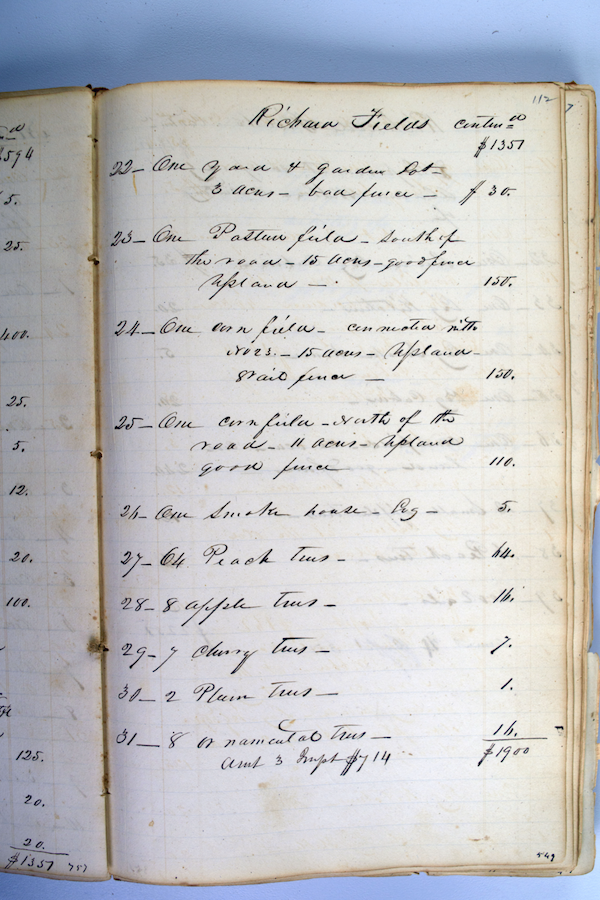 112
Richard Fields continud
$1351
22 - One yard & garden Lot -
3 acres - bad fence - $30.
23 - One Pasture field - South of
the road - 15 acres - good fence
Upland - 150.
24 - One corn field - connected with
No 23. - 15 acres - Upland -
8 rail fence - 150.
25 - One cornfield - North of the
road - 11 acres - Upland
good fence 110.
26 - One Smoke house - Log - 5.
27 - 64 Peach trees - 64.
28 - 8 apple trees - 16.
29 - 7 cherry trees - 7.
30 - 2 Plum trees - 1.
31 - 8 ornamental trees - 16.
Amt 3 Impt $714 $1900
549
$594
5.
25.
400.
25.
5.
12.
20.
100.
125.
20.
20.
$1351 757